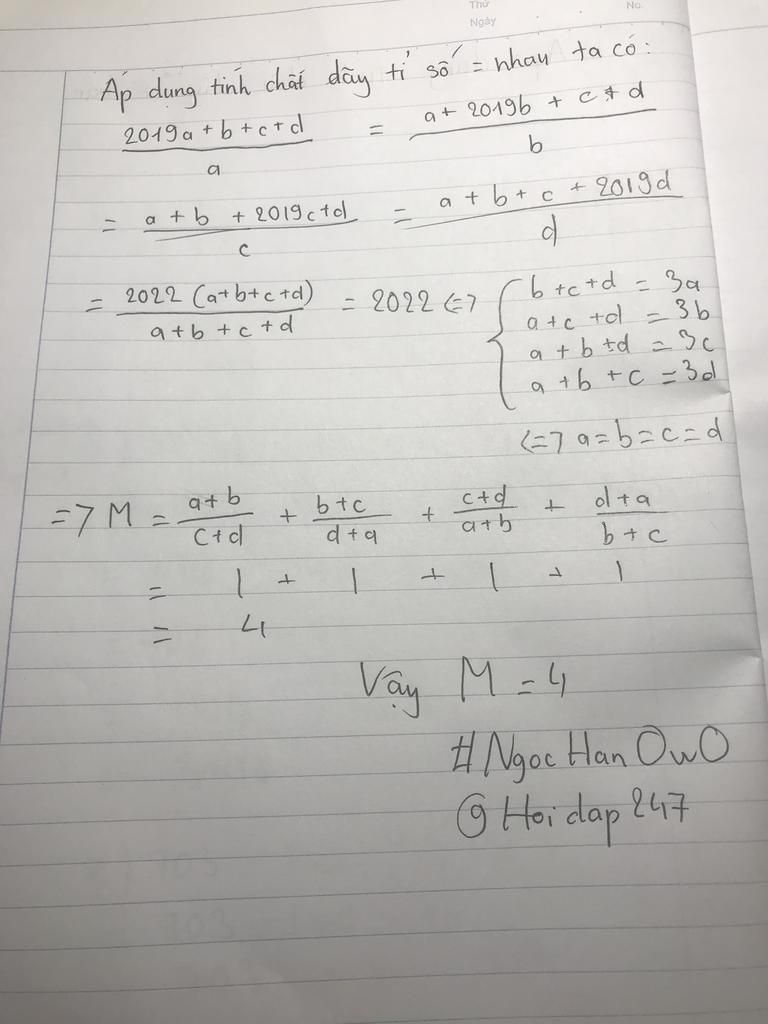 Thứ No.
Ngày
Áp dụng tính chất dãy tỉ số = nhau ta có:
2019a + b + c + d / a = a + 2019b + c + d / b
= a + b + 2019c + d / c = a + b + c + 2019d / d
= 2022 (a+b+c+d) / a + b + c + d = 2022 <=> { b + c + d = 3a
a + c + d = 3b
a + b + d = 3c
a + b + c = 3d
<=> a = b = c = d
=> M = a + b / c + d + b + c / d + a + c + d / a + b + d + a / b + c
= 1 + 1 + 1 + 1
= 4
Vậy M = 4
#Ngoc Han OwO
@ Hoi dap 247